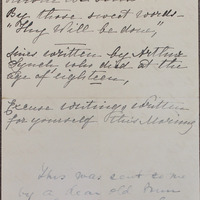 By those sweet words—
"Thy Will be done,"
Lines written by Arthur
Lynch who died at the
age of eighteen,
Excuse writing written
for yourself this Morning
This was sent to me
by a dear old